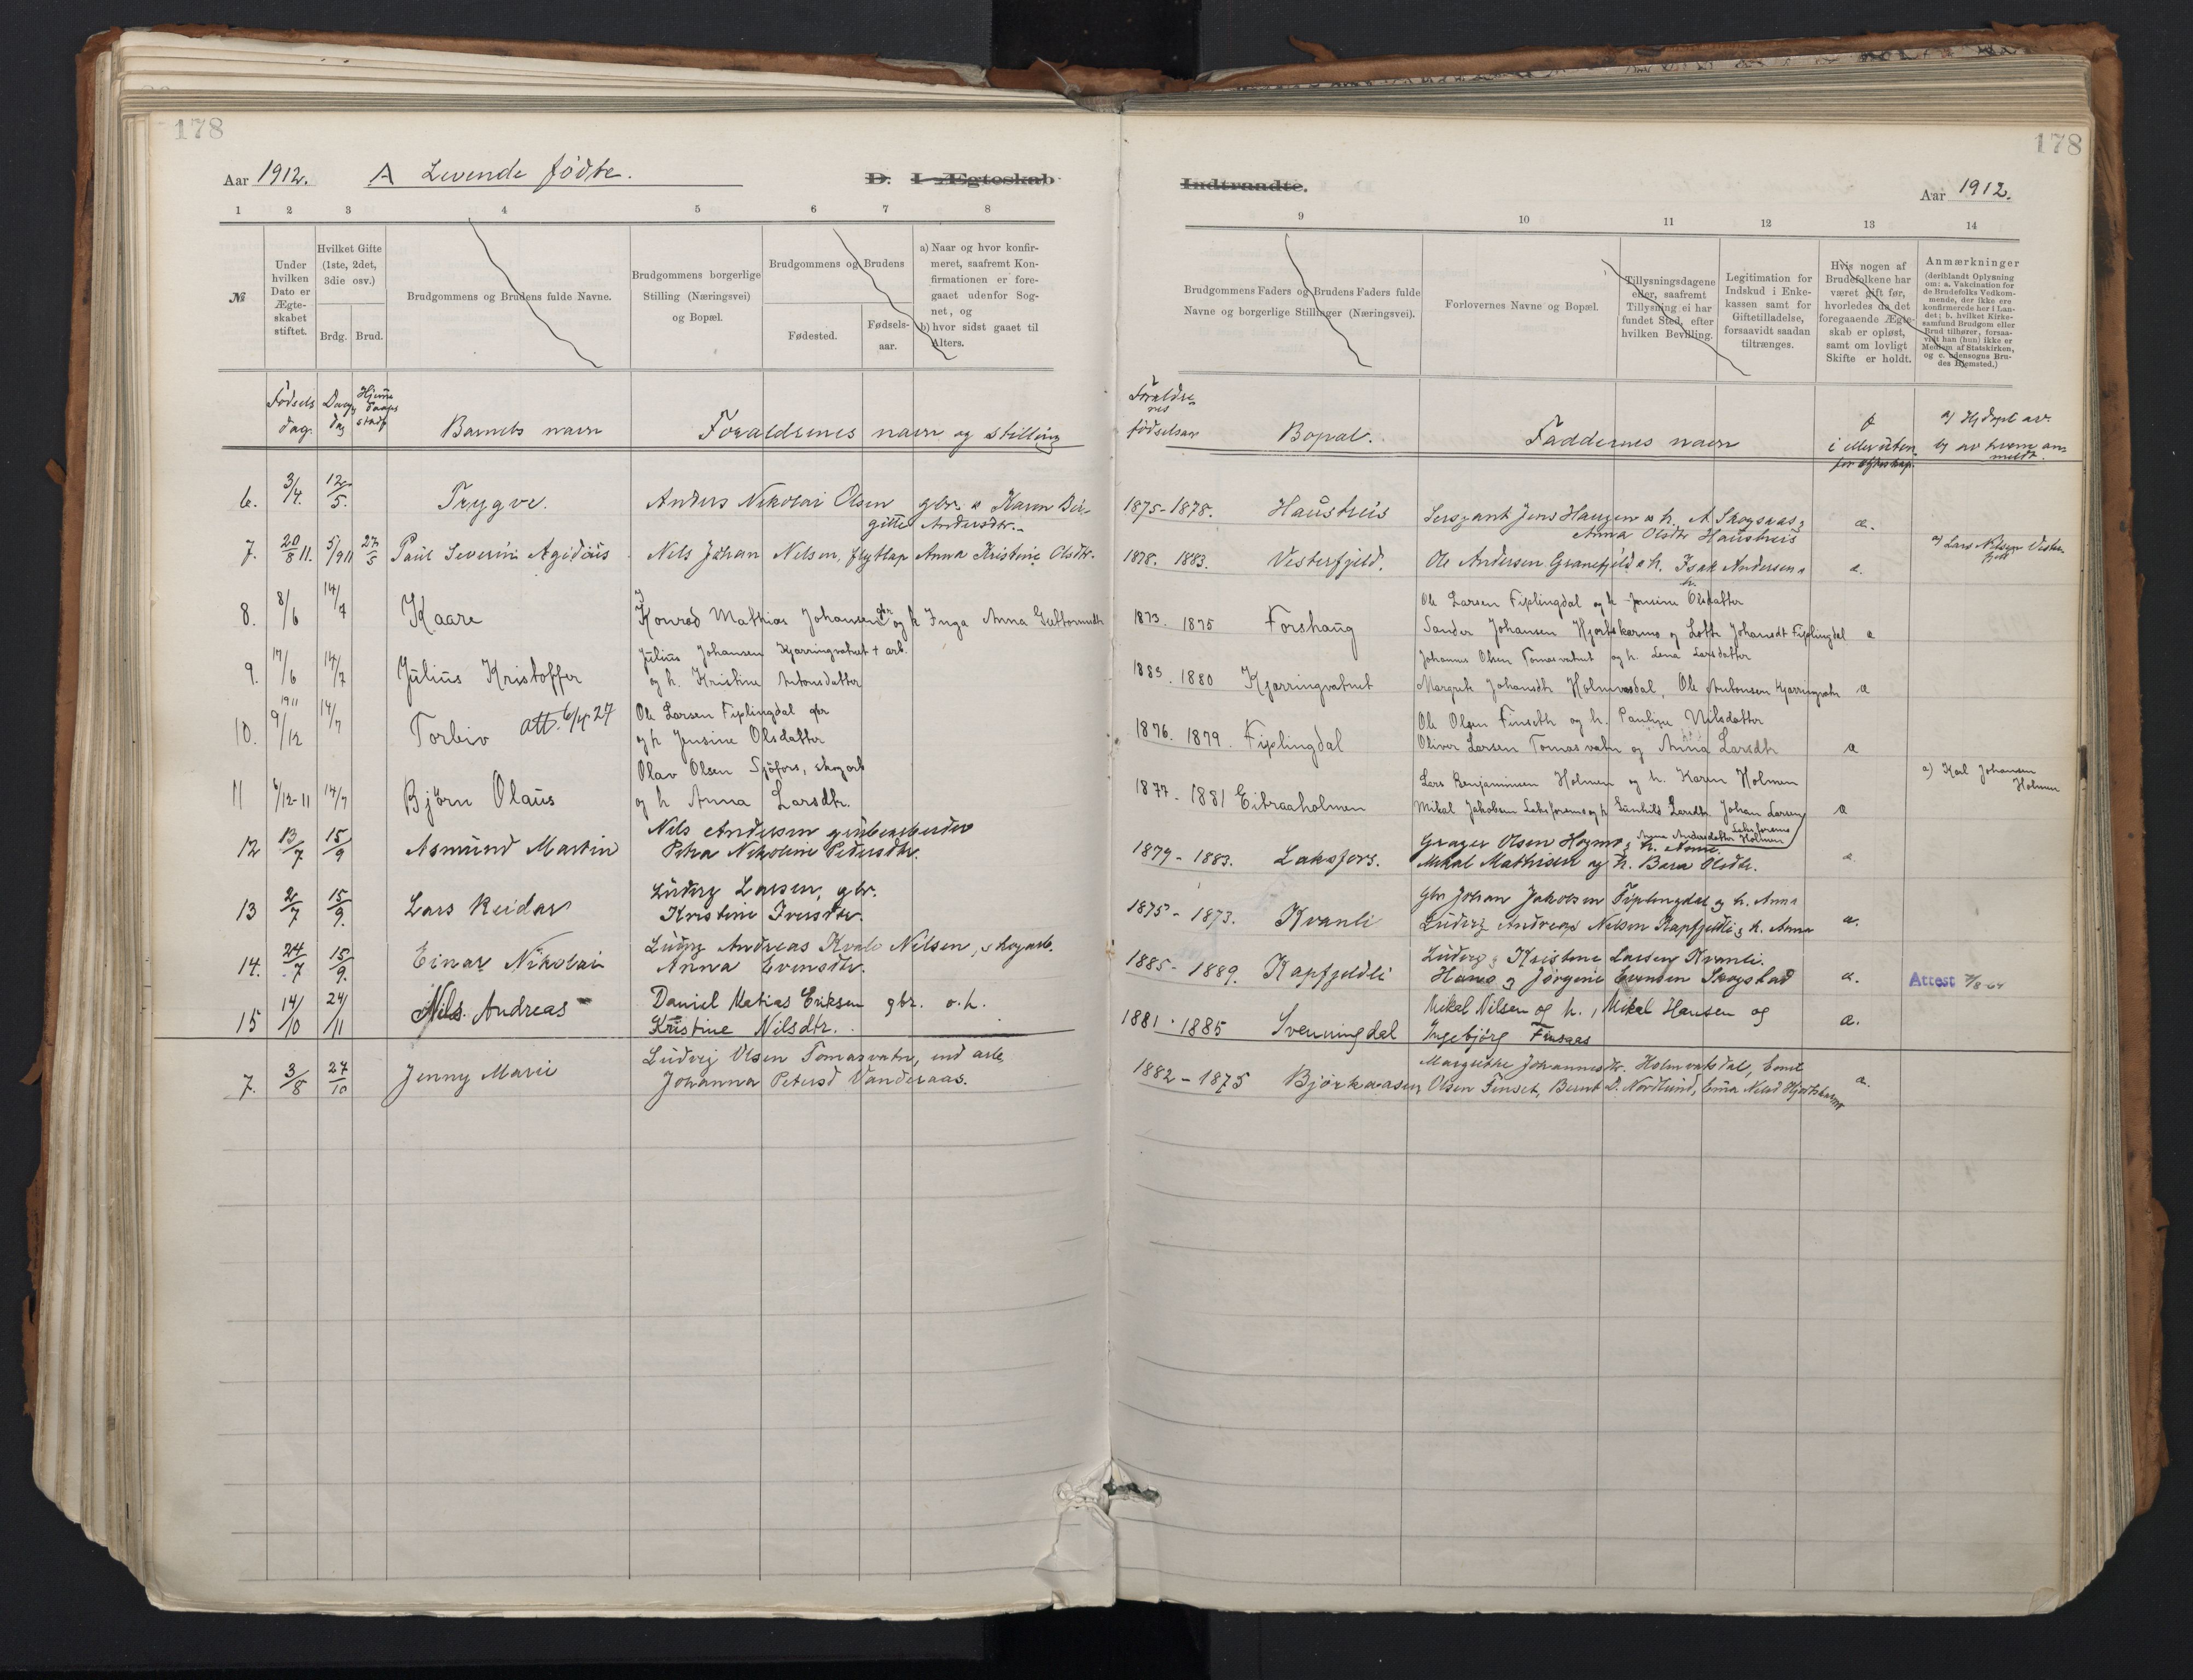 178
Aar 1912. A Levende fødte. D. I. Ægteskab
1 2 3 4 5 6 7 8
№
Under hvilken Dato er Ægteskabet stiftet.
Hvilket Gifte (1ste, 2det, 3die osv.)
Brdg. Brud.
Brudgommens og Brudens fulde Navne.
Brudgommens borgerlige Stilling (Næringsvei) og Bopæl.
Brudgommens og Brudens
Fødested.
Fødselsaar.
a) Naar og hvor konfirmeret, saafremt Konfirmationen er foregaaet udenfor Sognet, og
b) hvor sidst gaaet til Alters.
Fødsels dag. Daabs dag Hjemme daaps
Barnets navn Foraldrenes navn og stilling
6. 3/4. 12/5. Trygve. Anders Nikolai Olsen gbr. o Karen Bir-
gitte Andersdtr.
7. 20/8 11. 5/9 11 27/5 Paul Severin Agidius Nels Johan Nelsen, flytlap Anna Kristine Olsdtr.
8. 8/6 14/7 Kaare Konrad Mathias Johansen gbr og h Inga Anna
9. 17/6 14/7 Julius Kristoffer Julius Johansen Kjærringvatnet + arb.
og h. Kristine Antonsdatter
10. 1911 9/12 14/7 Torbiv att. 6/4 27 Ole Larsen Fiplingdal gbr
og h Jensine Olsdatter
11 6/12-11 14/7 Bjørn Olaus Olav Olsen Sjøfors, skogarb
og h Anna Larsdtr.
12 13/7 15/9 Asmund Martin Nils Andersen grubearbeider
Petra Nikoline Pedersdtr.
13 2/7 15/9. Lars Reidar Ludvig Larsen, gbr.
Kristine Iversdtr.
14. 24/7 15/9. Einar Nikolai Ludvig Andreas Nilsen, skogarb.
Anna Evensdtr.
15 14/10 24/11 Nils Andreas Daniel Matias Eriksen gbr. o. h.
Kristine Nilsdtr.
7. 3/8 27/10 Jenny Marie Ludvig Olsen Tomasvatn, ind arb
Johanna Petersd Vanderaas.
178
Indtraadte. Aar 1912.
9 10 11 12 13 14
Brudgommens Faders og Brudens Faders fulde Navne og borgerlige Stillinger (Næringsvei).
Forlovernes Navne og Bopæl.
Tillysningsdagene eller, saafremt Tillysning ei har fundet Sted, efter hvilken Bevilling.
Legitimation for Indskud i Enkekassen samt for Giftetilladelse, forsaavidt saadan tiltrænges.
Hvis nogen af Brudefolkene har været gift før, hvorledes da det foregaaende Ægteskab er opløst, samt om lovligt Skifte er holdt.
Anmærkninger
(deriblandt Oplysning om: a. Vakcination for de Brudefolks Vedkommende, der ikke ere konfirmerede her i Landet; b. hvilket Kirkesamfund Brudgom eller Brud tilhører, forsaavidt han (hun) ikke er Medlem af Statskirken, og c. udensogns Brudes Hjemsted.)
Foraldrenes fødselsaar Bopæl. Faddernes navn i eller uten for Ægteskap. a) Hj døpt av. b) av hvem anmeldt.
1875-1878. Haustreis Sersjant Jens Haugen o h. A Skogsaas
Anna Olsdtr Haustreis a.
1878. 1883. Vesterfjeld. Ole Andersen Granefjeld o h. Isak Andersen o h. a. a) Lars Nilsen Vesterfjell
1873. 1875 Forshaug Ole Larsen Fiplingdal og h Jensine Olsdatter
Sander Johansen Hjortskarmo og Lotte Johansdt Fiplingdal a
1883. 1880 Kjærringvatnet Johannes Olsen Tomasvatnet og h. Lena Larsdatter
Margret Johansdtr Holmvasdal, Ole Antonsen Kjærringvatn a
1876. 1879. Fiplingdal Ole Olsen Finseth og h. Pauline Nilsdatter
Oliver Larsen Tomasvatn og Anna Larsdtr a
1877-1881 Eiteraaholmen Lars Benjaminsen Holmen og h. Karen Holmen
Mikal Jakobsen Laksforsmo og h Gunhild Larsdtr Johan Larsen Laksforsmo a a) Karl Johansen Holmen
Anna Andersdatter Holmen
1879-1883. Laksfors. Olsen
Mikal Mathisen og h. Bera Olsdtr. a.
1875-1873. Kvanli Gbr Johan Jakobsen Fiplingdal og h. Anna
Ludvig Andreas Nilsen Kapfjeldli og h. Anna a.
1885-1889. Kapfjeldli Ludvig og Kristine Larsen Kvanli.
Hans og Jørgine Evensen Skogstad a. Attest 7/8-64
1881-1885 Svenningdal Mikal Nilsen og h., Mikal Hansen og
Ingebjørg Finsaas a.
1882-1875 Bjørkaasen, Margrethe Johannesdtr. Holmvatsdal, Emil
Olsen Finset, Bernt D. Nordlund, Erna Nelsd Hjortskarmo a.